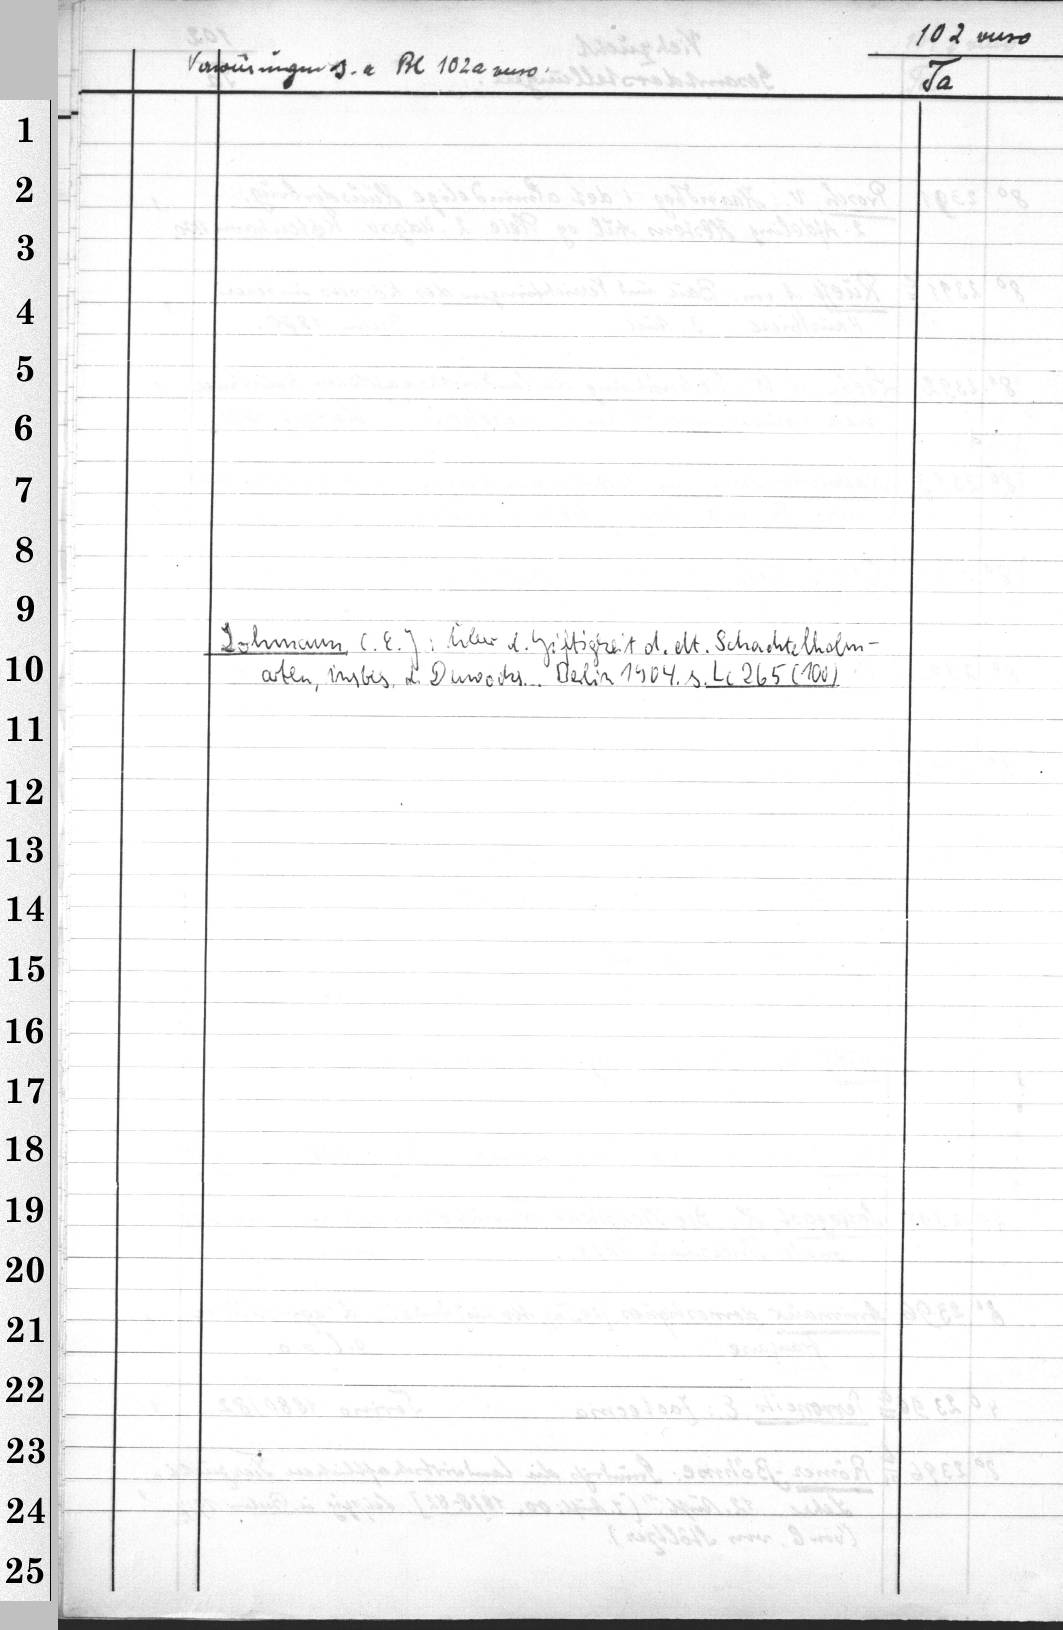 102 verso
Verweisungen s. a Bl 102a verso.
Ta
1
2
3
4
5
6
7
8
9
Lohmann, C. E. J: Über d. Giftigkeit d. dt. Schachtelhalm-
10
arten, insbes. d. Duwocks... Berlin 1904. s. Lc 265 (100)
11
12
13
14
15
16
17
18
19
20
21
22
23
24
25